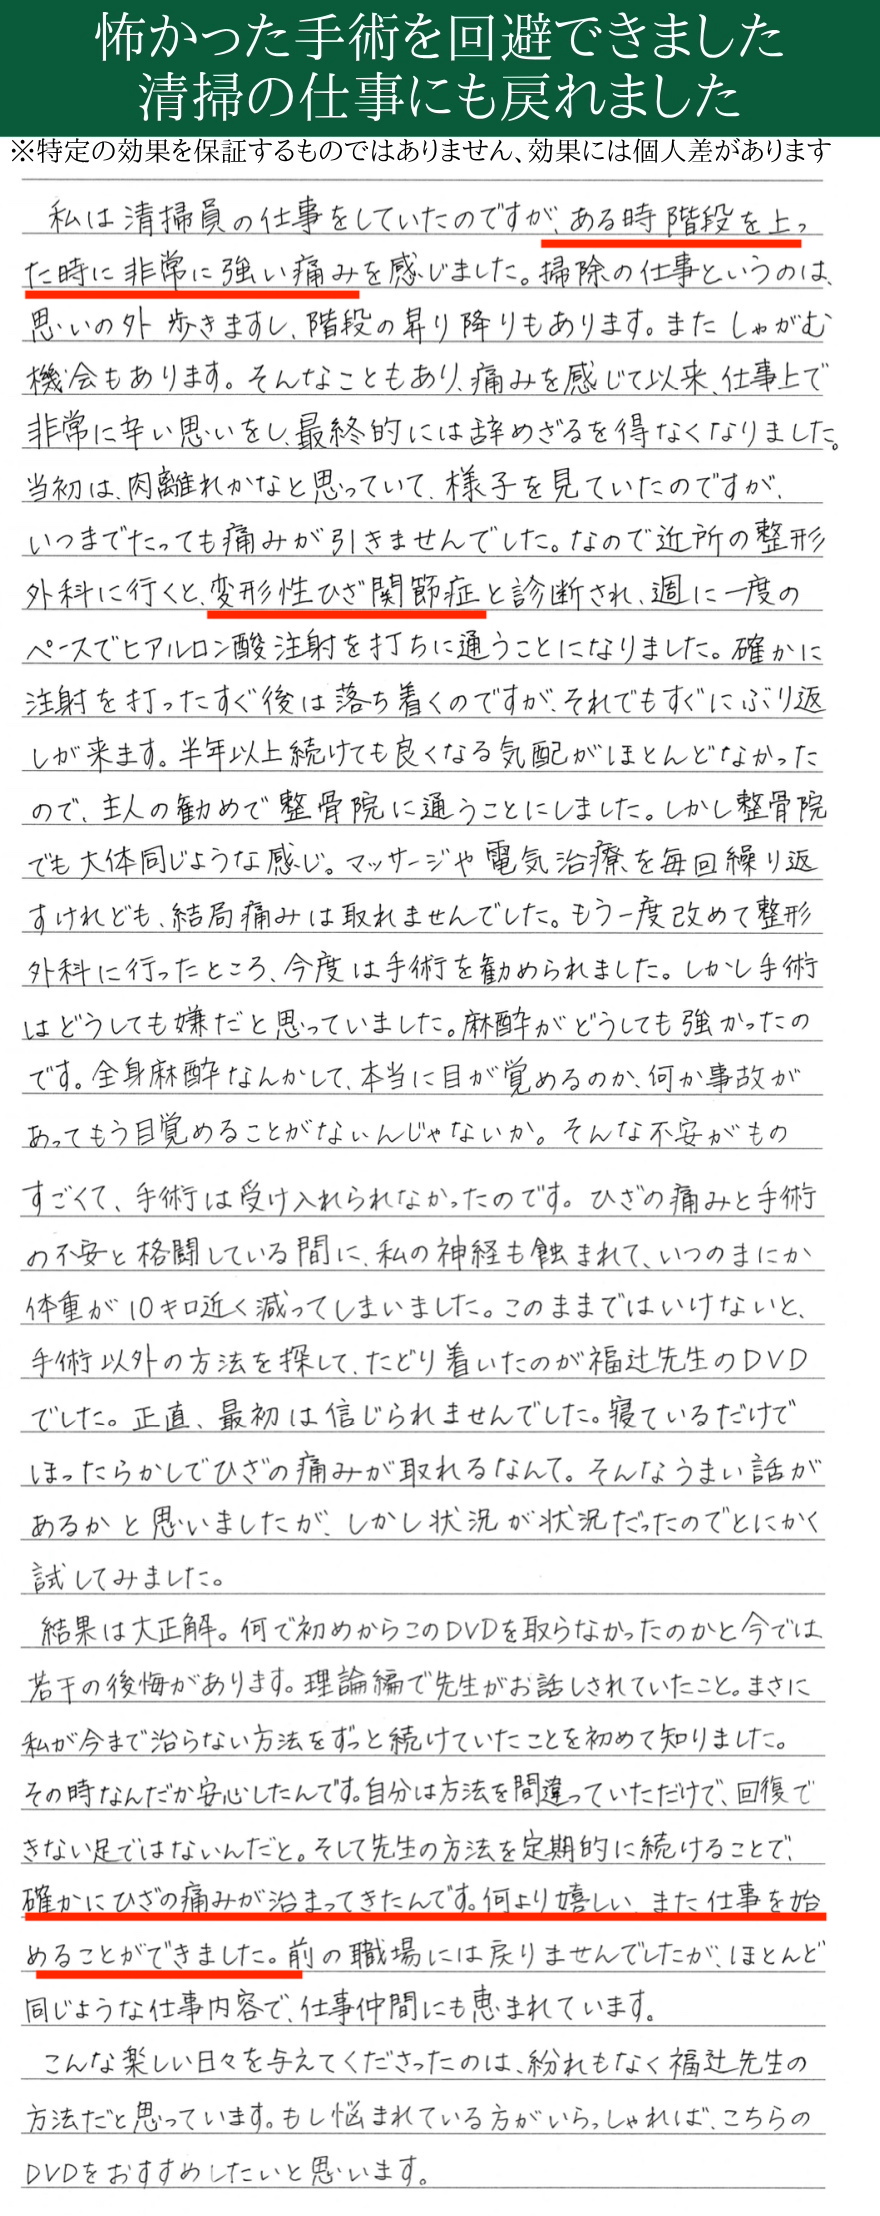 怖かった手術を回避できました
清掃の仕事にも戻れました
※特定の効果を保証するものではありません、効果には個人差があります
私は清掃員の仕事をしていたのですが、ある時階段を上っ
た時に非常に強い痛みを感じました。掃除の仕事というのは、
思いの外歩きますし、階段の昇り降りもあります。またしゃがむ
機会もあります。そんなこともあり、痛みを感じて以来、仕事上で
非常に辛い思いをし、最終的には辞めざるを得なくなりました。
当初は、肉離れかなと思っていて、様子を見ていたのですが、
いつまでたっても痛みが引きませんでした。なので近所の整形
外科に行くと、変形性ひざ関節症と診断され、週に一度の
ペースでヒアルロン酸注射を打ちに通うことになりました。確かに
注射を打ったすぐ後は落ち着くのですが、それでもすぐにぶり返
しが来ます。半年以上続けても良くなる気配がほとんどなかった
ので、主人の勧めで整骨院に通うことにしました。しかし整骨院
でも大体同じような感じ。マッサージや電気治療を毎回繰り返
すけれども、結局痛みは取れませんでした。もう一度改めて整形
外科に行ったところ、今度は手術を勧められました。しかし手術
はどうしても嫌だと思っていました。麻酔がどうしても強かったの
です。全身麻酔なんかして、本当に目が覚めるのか、何か事故が
あってもう目覚めることがないんじゃないか。そんな不安がもの
すごくて、手術は受け入れられなかったのです。ひざの痛みと手術
の不安と格闘している間に、私の神経も蝕まれて、いつのまにか
体重が10キロ近く減ってしまいました。このままではいけないと、
手術以外の方法を探して、たどり着いたのが福辻先生のDVD
でした。正直、最初は信じられませんでした。寝ているだけで
ほったらかしでひざの痛みが取れるなんて。そんなうまい話が
あるかと思いましたが、しかし状況が状況だったのでとにかく
試してみました。
結果は大正解。何で初めからこのDVDを取らなかったのかと今では
若干の後悔があります。理論編で先生がお話しされていたこと。まさに
私が今まで治らない方法をずっと続けていたことを初めて知りました。
その時なんだか安心したんです。自分は方法を間違っていただけで、回復で
きない足ではないんだと。そして先生の方法を定期的に続けることで、
確かにひざの痛みが治まってきたんです。何より嬉しい、また仕事を始
めることができました。前の職場には戻りませんでしたが、ほとんど
同じような仕事内容で、仕事仲間にも恵まれています。
こんな楽しい日々を与えてくださったのは、紛れもなく福辻先生の
方法だと思っています。もし悩まれている方がいらっしゃれば、こちらの
DVDをおすすめしたいと思います。